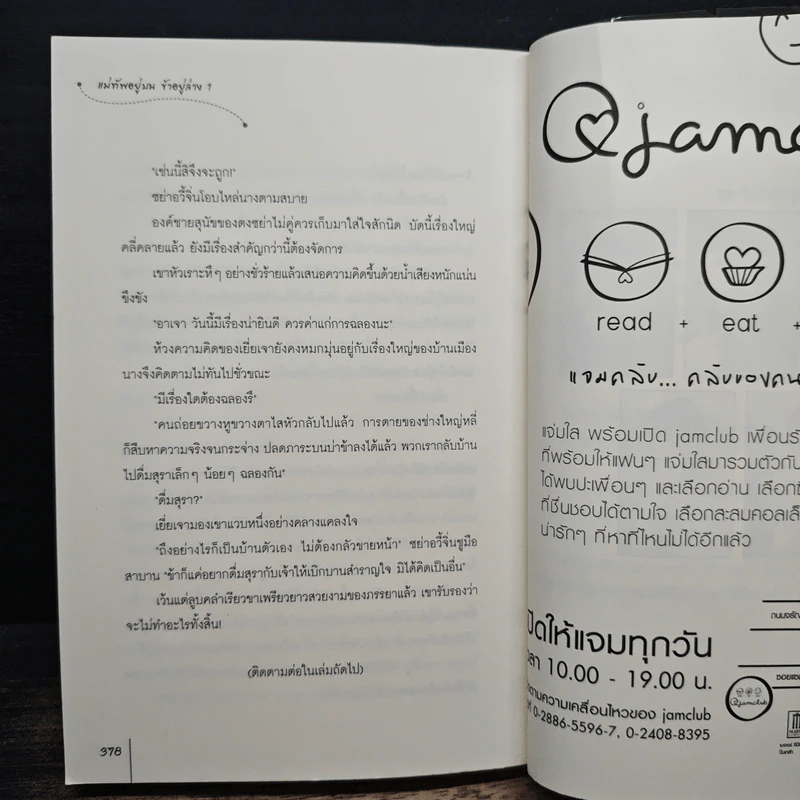 แม่ทัพอยู่บน ข้าอยู่ล่าง 1
"เช่นนี้สิจึงจะถูก!"
ซย่าอวี้จิ่นโอบไหล่นางตามสบาย
องค์ชายสุนัขของตงซย่าไม่คู่ควรเก็บมาใส่ใจสักนิด บัดนี้เรื่องใหญ่
คลี่คลายแล้ว ยังมีเรื่องสำคัญกว่านี้ต้องจัดการ
เขาหัวเราะหึๆ อย่างชั่วร้ายแล้วเสนอความคิดขึ้นด้วยน้ำเสียงหนักแน่น
ขึงขัง
"อาเจา วันนี้มีเรื่องน่ายินดี ควรค่าแก่การฉลองนะ"
ห้วงความคิดของเยี่ยเจายังคงหมกมุ่นอยู่กับเรื่องใหญ่ของบ้านเมือง
นางจึงคิดตามไม่ทันไปชั่วขณะ
"มีเรื่องใดต้องฉลองรึ"
"คนถ่อยขวางหูขวางตาไสหัวกลับไปแล้ว การตายของช่างใหญ่หลี่
ก็สืบหาความจริงจนกระจ่าง ปลดภาระบนบ่าข้าลงได้แล้ว พวกเรากลับบ้าน
ไปดื่มสุราเล็กๆ น้อยๆ ฉลองกัน"
"ดื่มสุรา?"
เยี่ยเจามองเขาแวบหนึ่งอย่างคลางแคลงใจ
"ถึงอย่างไรก็เป็นบ้านตัวเอง ไม่ต้องกลัวขายหน้า" ซย่าอวี้จิ่นชูมือ
สาบาน "ข้าก็แค่อยากดื่มสุรากับเจ้าให้เบิกบานสำราญใจ มิได้คิดเป็นอื่น"
เว้นแต่ลูบคลำเรียวขาเพรียวยาวสวยงามของภรรยาแล้ว เขารับรองว่า
จะไม่ทำอะไรทั้งสิ้น!
(ติดตามต่อในเล่มถัดไป)
378
jamc
read + eat +
แจมคลับ... คลับของคน
แจ่มใส พร้อมเปิด jamclub เพื่อนรั
ที่พร้อมให้แฟนๆ แจ่มใสมารวมตัวกัน
ได้พบปะเพื่อนๆ และเลือกอ่าน เลือกช
ที่ชื่นชอบได้ตามใจ เลือกสะสมคอลเล็
น่ารักๆ ที่หาที่ไหนไม่ได้อีกแล้ว
ปิดให้แจมทุกวัน
ลา 10.00 - 19.00 น.
ตามความเคลื่อนไหวของ jamclub
0-2886-5596-7, 0-2408-8395
jamclub